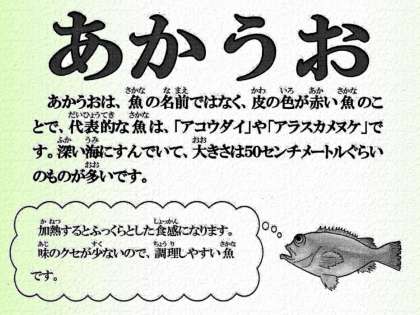 あかうお
あかうおは、魚の名前ではなく、皮の色が赤い魚のこ
とで、代表的な魚は、「アコウダイ」や「アラスカメヌケ」で
す。深い海にすんでいて、大きさは50センチメートルぐらい
のものが多いです。
加熱するとふっくらとした食感になります。
味のクセが少ないので、調理しやすい魚
です。